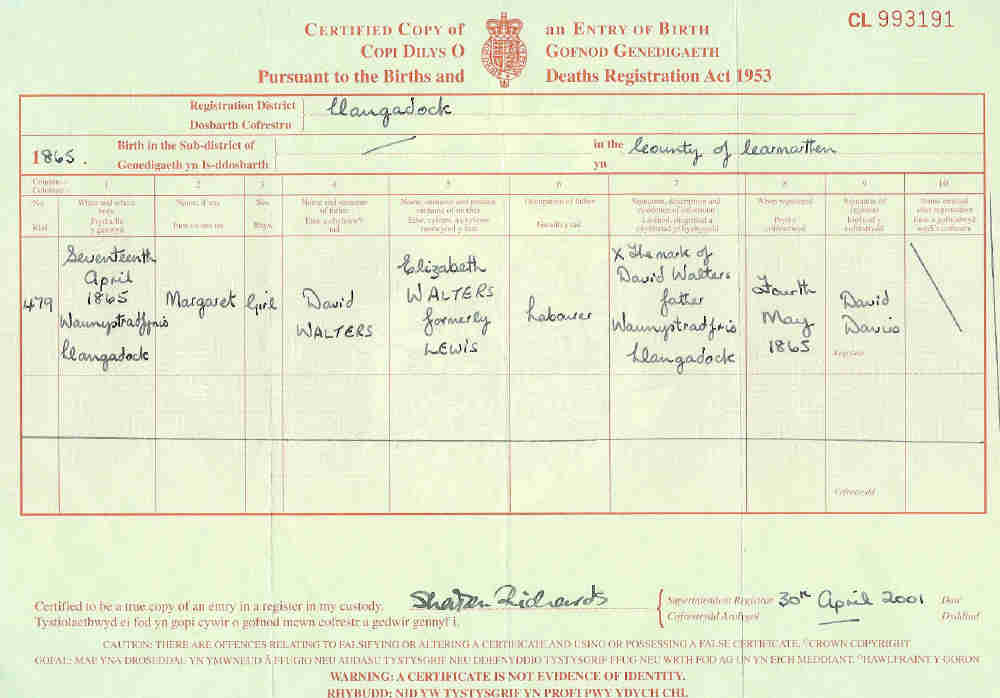 CERTIFIED COPY of an ENTRY OF BIRTH
COPI DILYS O GOFNOD GENEDIGAETH
Pursuant to the Births and Deaths Registration Act 1953
CL 993191
Registration District Llangadock
Dosbarth Cofrestru
1865. Birth in the Sub-district of in the County of Carmarthen
Genedigaeth yn Is-ddosbarth yn
1 2 3 4 5 6 7 8 9 10
No. When and where born Name, if any Sex Name and surname of father Name, surname and maiden surname of mother Occupation of father Signature, description and residence of informant When registered Signature of registrar Name entered after registration
479
Seventeenth
April
1865
Waunystradfris
Llangadock
Margaret
Girl
David
WALTERS
Elizabeth
WALTERS
formerly
LEWIS
Labourer
X The mark of
David Walters
father
Waunystradfris
Llangadock
Fourth
May
1865
David
Davis
Registrar
Cofrestrydd
Certified to be a true copy of an entry in a register in my custody. Sharon Richards Superintendent Registrar 30th April 2001 Date
Tystiolaethwyd ei fod yn gopi cywir o gofnod mewn cofrestr a gedwir gennyf i. Cofrestrydd Arolygol Dyddiad
CAUTION: THERE ARE OFFENCES RELATING TO FALSIFYING OR ALTERING A CERTIFICATE AND USING OR POSSESSING A FALSE CERTIFICATE. ©CROWN COPYRIGHT
GOFAL: MAE YNA DROSEDDAU YN YMWNEUD Â FFUGIO NEU ADDASU TYSTYSGRIF NEU DDEFNYDDIO TYSTYSGRIF FFUG NEU WRTH FOD AG UN YN EICH MEDDIANT. ©HAWLFRAINT Y GORON
WARNING: A CERTIFICATE IS NOT EVIDENCE OF IDENTITY.
RHYBUDD: NID YW TYSTYSGRIF YN PROFI PWY YDYCH CHI.